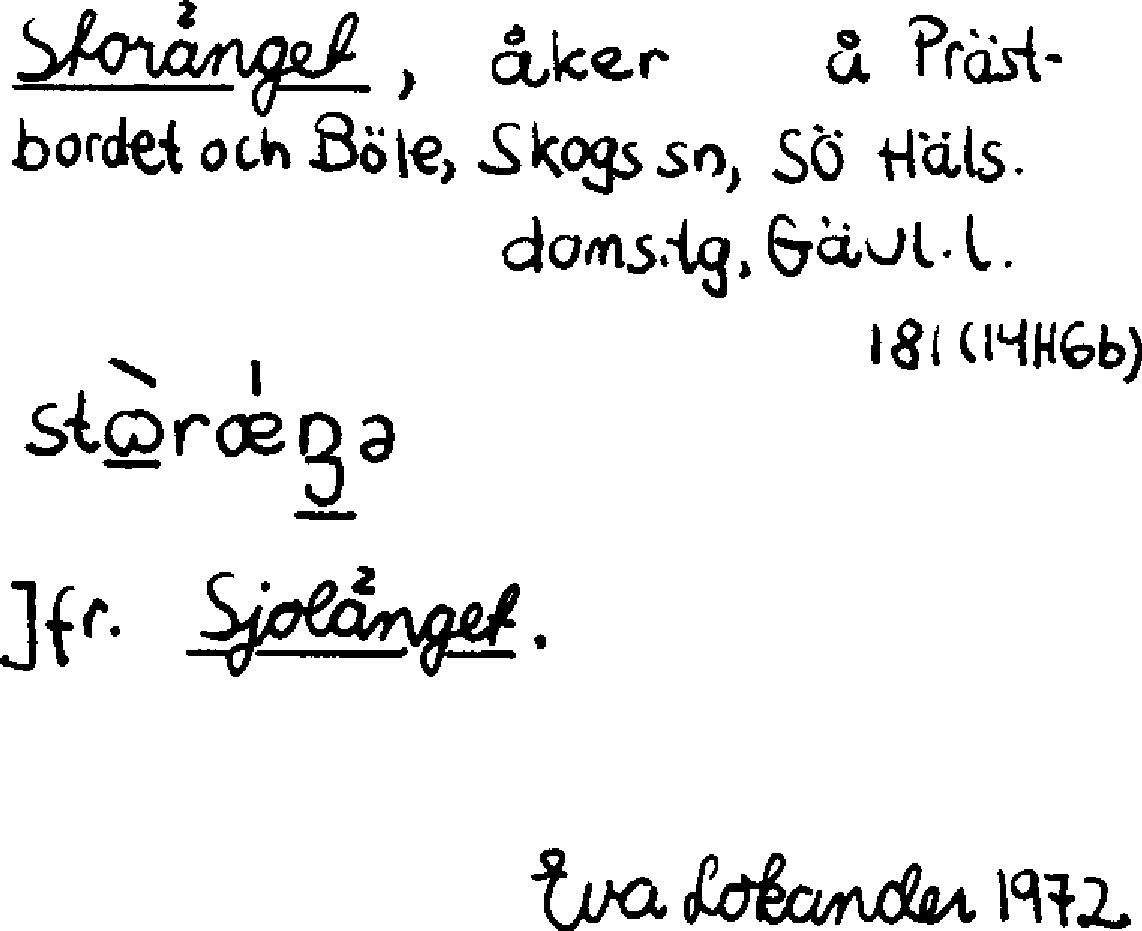 Storänget, åker å Präst-
bordet och Böle, Skogs sn, Sö Häls.
doms.tg, Gävl.l.
181 (14H6b)
Jfr. Sjolänget.
Eva Lokander 1972